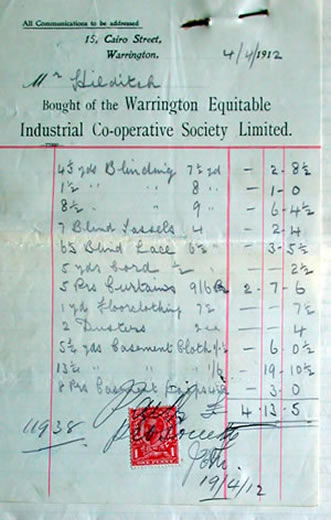 All Communications to be addressed
15, Cairo Street,
Warrington, 4/4/1912
Mr Hilditch
Bought of the Warrington Equitable
Industrial Co-operative Society Limited.
4½ yds Blinding 7½ yd - 2 - 8½
1½ " " 8 - 1 - 0
8½ " 9 - 6 - 4½
7 Blind Tassels 4 - 2 - 4
6½ Blind Lace 6½ " - 3 - 5½
5 yds Cord ½ - - 2½
5 Prs Curtains 9/6 2 - 7 - 6
1 yd Floorclothing 7½ - - 7½
2 Dusters 2 - - 4
5½ yds Casement Cloth - 6 - 0½
13½ " " 1/ - 19 - 10½
8 Prs Casement - 3 - 0
£ 4 - 13 - 5
11938
ONE PENNY
19/4/12